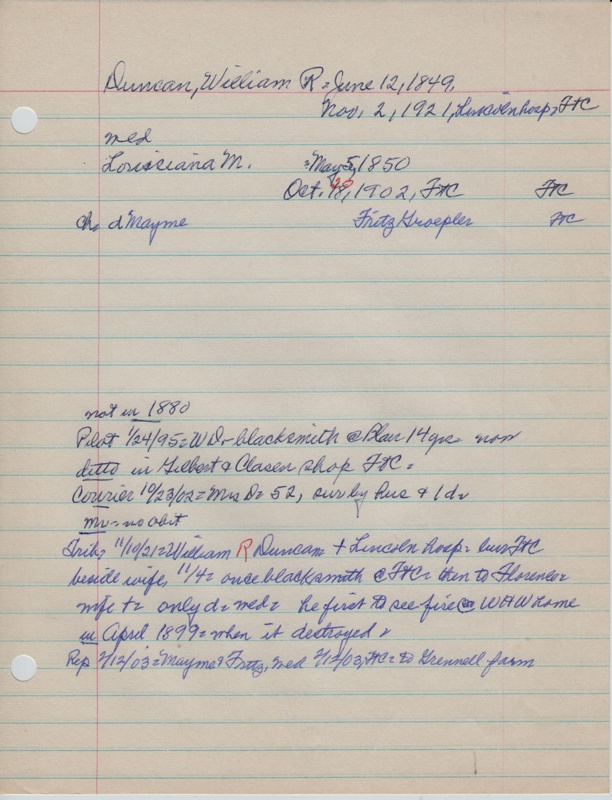 Duncan, William R = June 12, 1849,
Nov. 2, 1921, Lincoln hosp, FtC
med
Louisiana M. = May 5, 1850
Oct. 18, 1902, FtC FtC
ch d Mayme Fritz Groepler FtC
not in 1880
Pilot 1/24/95 = W D - blacksmith @ Blair 14 yrs = now
ditto in Gilbert & Clasen shop FtC =
Courier 10/23/02 = Mrs D = 52, sur by hus & 1 d =
mv = no obit
Trib, 11/10/21 = William R Duncan + Lincoln hosp = bur FtC
beside wife, 11/4 = once blacksmith @ FtC = then to Florence =
wife + = only d = med = he first to see fire @ WHW home
in April 1899 = when it destroyed =
Rep 2/12/03 = Mayme & Fritz, med 2/12/03, FtC = to Grennell farm